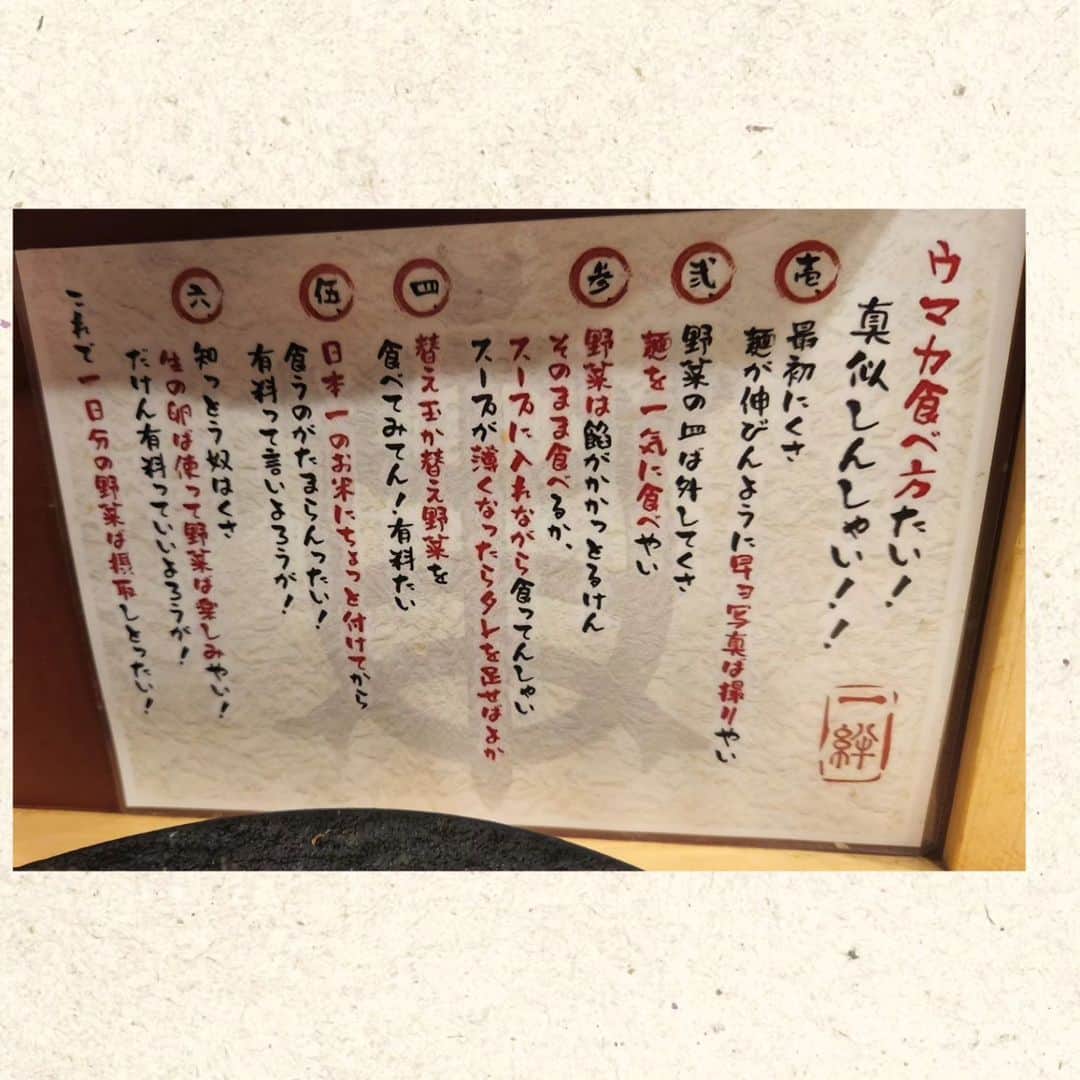 ウマカ食べ方たい！
真似しんしゃい！！
一絆
壱
最初にくさ
麺が伸びんように早ヨ写真ば撮りやい
弐
野菜の皿ば外してくさ
麺を一気に食べやい
参
野菜は餡がかかっとるけん
そのまま食べるか、
スープに入れながら食ってんしゃい
スープが薄くなったらタレを足せばよか
四
替え玉か替え野菜を
食べてみてん！有料たい
伍
日本一のお米にちょっと付けてから
食うのがたまらんったい！
有料って言いよろうが！
六
知っとう奴はくさ
生の卵ば使って野菜ば楽しみやい！
だけん有料っていいよろうが！
これで一日分の野菜は摂取しとったい！